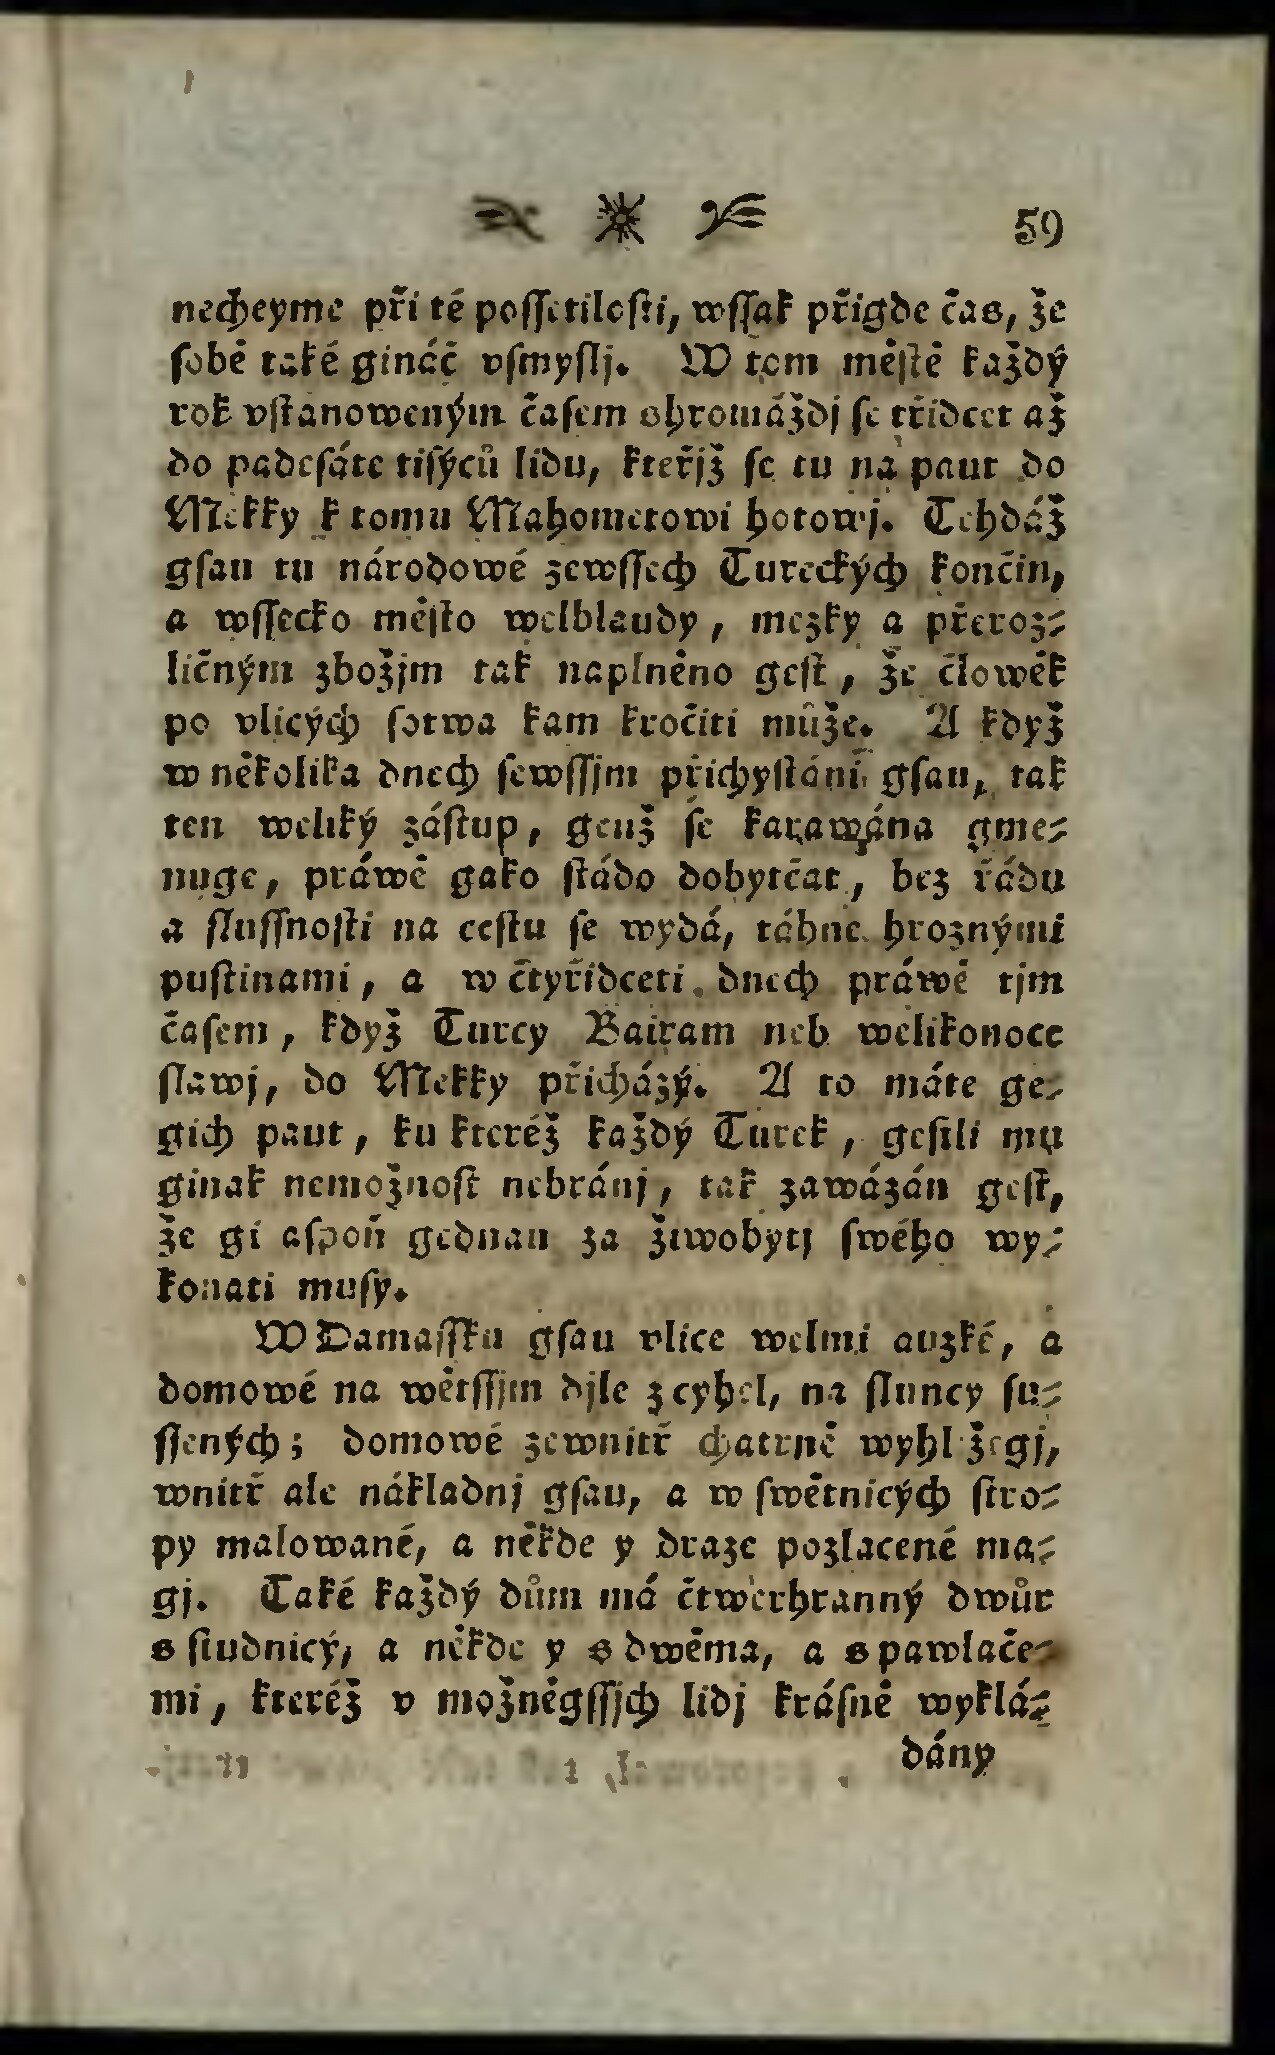 59
necheyme při té possetilosti, wssak přigde čas, že
sobě také gináč vsmyslj. W tom městě každý
rok vstanoweným časem shromáždj se třidcet až
do padesáte tisýců lidu, kteřjž se tu na paut do
Mekky k tomu Mahometowi hotowj. Tehdáž
gsau tu národowé zewssech Tureckých končin,
a wssecko město welblaudy, mezky a přeroz-
ličným zbožjm tak naplněno gest, že člowěk
po vlicých sotwa kam kročiti může. A když
w několika dnech sewssjm přichystáni gsau, tak
ten weliký zástup, genž se karawána gme-
nuge, práwě gako stádo dobytčat, bez řádu
a slussnosti na cestu se wydá, táhne hroznými
pustinami, a w čtyřidceti dnech práwě tjm
časem, když Turcy Bairam neb welikonoce
slawj, do Mekky přicházý. A to máte ge-
gich paut, ku kteréž každý Turek, gestli mu
ginak nemožnost nebránj, tak zawázán gest,
že gi aspoň gednau za žiwobytj swého wy-
konati musy.
W Damassku gsau vlice welmi auzké, a
domowé na wětssjm djle z cyhel, na sluncy su-
ssených; domowé zewnitř chatrně wyhljžegj,
wnitř ale nákladnj gsau, a w swětnicých stro-
py malowané, a někde y draze pozlacené ma-
gj. Také každý dům má čtwerhranný dwůr
s studnicý, a někde y s dwěma, a s pawlače-
mi, kteréž v možněgssjch lidj krásně wyklá-
dány